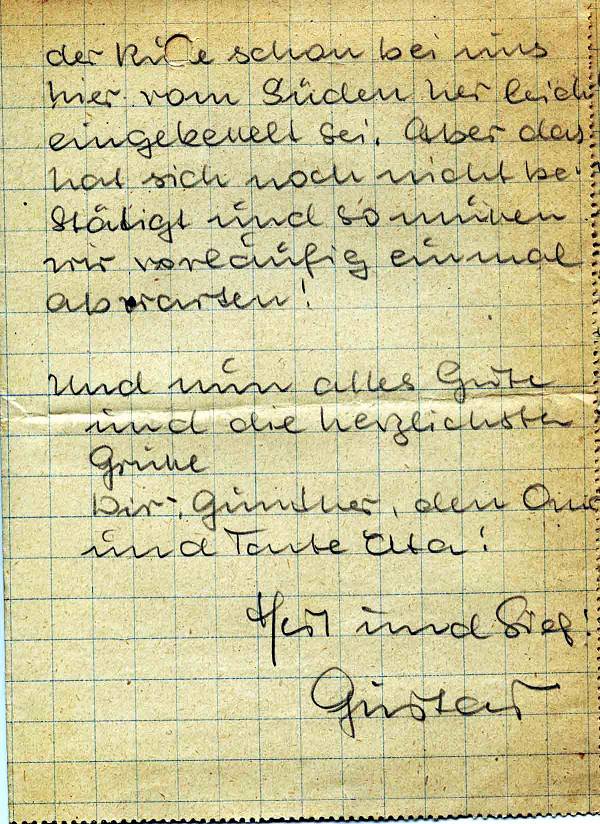 der Russe schon bei uns
hier vom Süden her leicht
eingekesselt sei. Aber das
hat sich noch nicht be-
stätigt und so müssen
wir vorläufig einmal
abwarten!
Und nun alles Gute
und die herzlichsten
Grüße
Dir, Günther, den
und Tante Etta!
Heil und Sieg!
Gustav